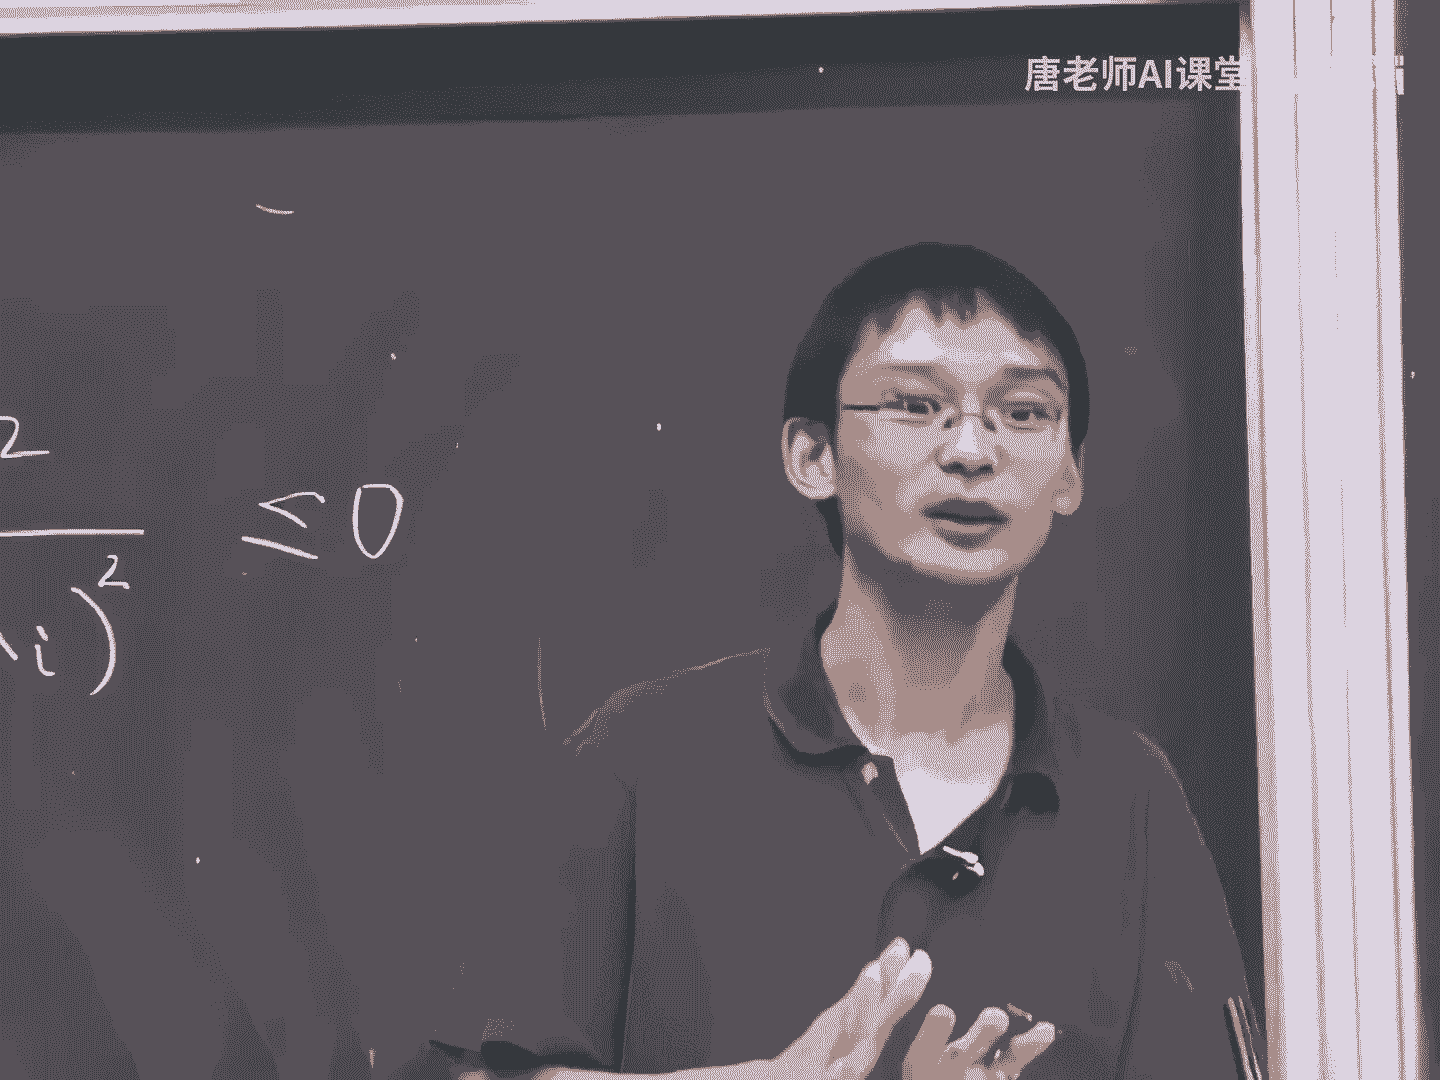 唐老师AI课堂
2
≤0
i)²